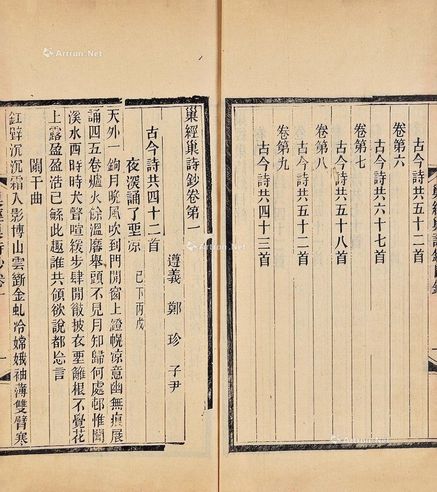 古今詩共五十二首
卷第六
古今詩共六十七首
卷第七
古今詩共五十八首
卷第八
古今詩共五十一首
卷第九
古今詩共四十三首
巢經巢詩鈔卷第一
遵義 鄭珍 子尹
古今詩共四十二首
夜深誦了坐涼 已下丙戌
天外一鉤月晚風吹到門開窗上燈幌涼意幽無痕展
誦四五卷爐火餘溫麐舉頭不見月知歸何處邨惟聞
溪水西時時犬聲喧緩步肆閒散披衣坐籬根不覺花
上露盈盈浩已緐此趣誰共領欲說都忘言
闌干曲
釭擘沉沉霜入影博山雲斷金虬冷嫦娥袖薄雙臂寒
Artron.Net
Artron.Net